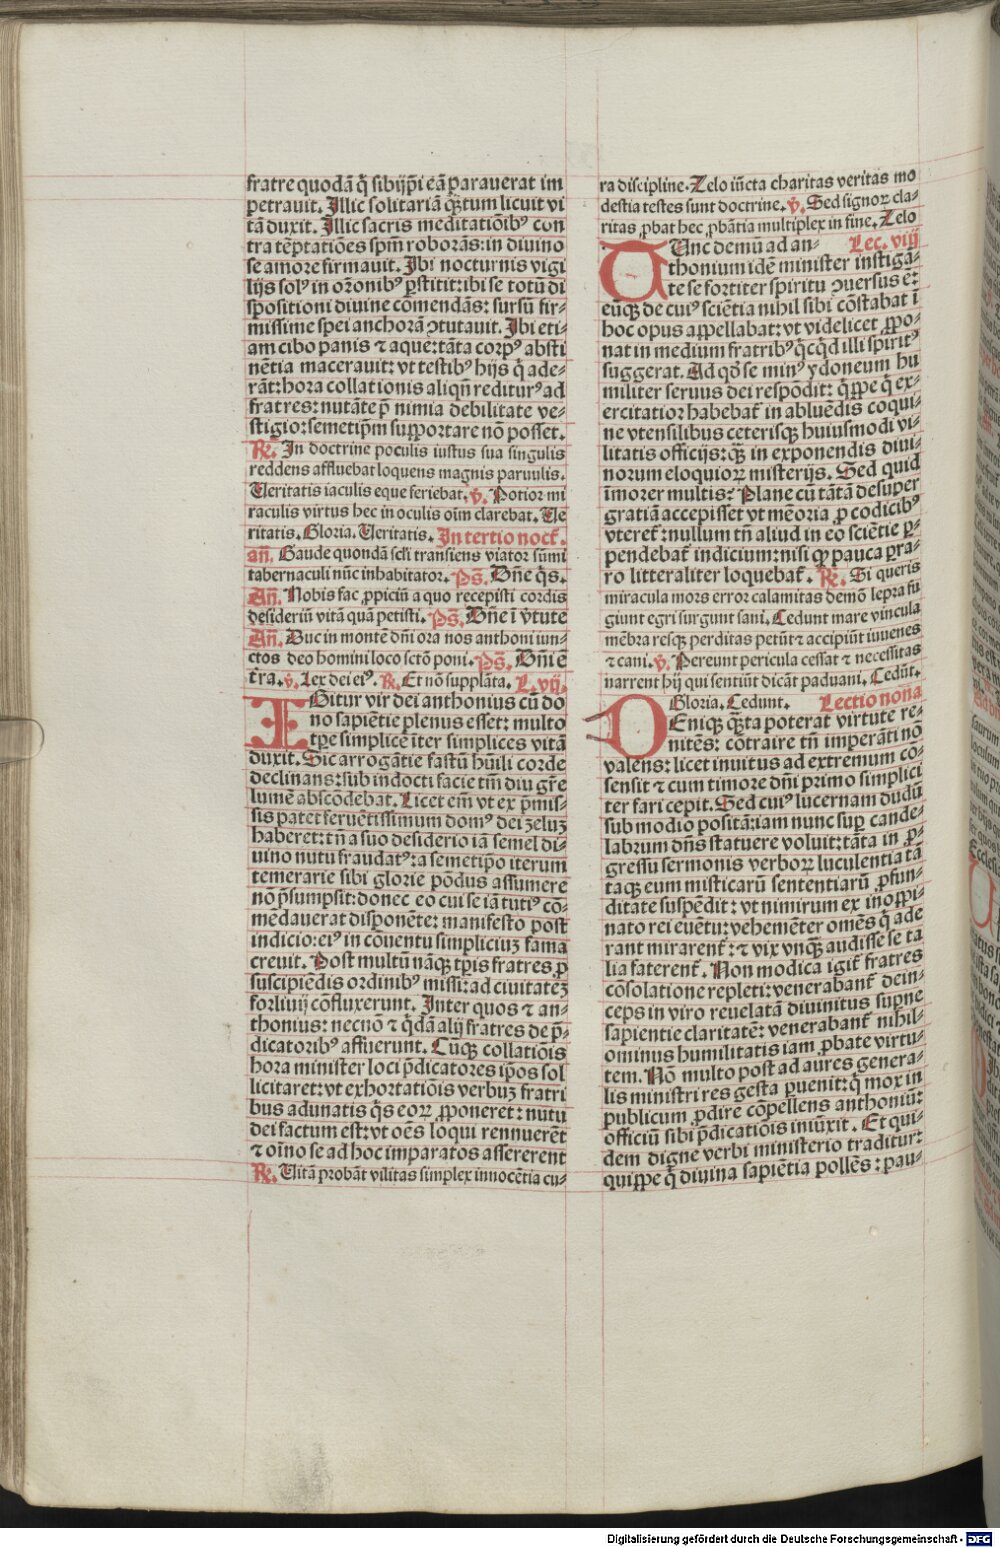 fratre quodã q̃ sibijp̃i eã parauerat im
petrauit. Illic solitariã q̃tum licuit vi
tã duxit. Illic sacris meditatiõib⁹ con
tra tẽptatiões spm̃ roborãs: in diuino
se amore firmauit. Ibi nocturnis vigi
lijs sol⁹ in orõnib⁹ p̲stitit: ibi se totũ di
spositioni diuine cõmendãs: sursũ fir⸗
missime spei anchorã ꝯtutauit. Ibi eti⸗
am cibo panis ⁊ aque: tãta corp⁹ absti
nẽtia macerauit: vt testib⁹ hijs q̃ ade⸗
rãt: hora collationis aliqñ reditur⁹ ad
fratres: nutãte p̃ nimia debilitate ve⸗
stigio: semetip̃m supportare nõ posset.
℞. In doctrine poculis iustus sua singulis
reddens affluebat loquens magnis paruulis.
Veritatis iaculis eque feriebat. ꝟ. Potior mi
raculis virtus hec in oculis oĩm clarebat. Ve
ritatis. Gloria. Veritatis. In tertio noct̃.
añ. Gaude quondã scl̃i transiens viator sũmi
tabernaculi nũc inhabitator. Ps̃. Dñe q̃s.
Añ. Nobis fac ꝓpiciũ a quo recepisti cordis
desideriũ vitã quã petisti. Ps̃. Dñe ĩ ṽtute
Añ. Duc in montẽ dñi ora nos anthoni iun⸗
ctos deo homini loco sctõ poni. Ps̃. Dñi ẽ
t̃ra. ꝟ. Lex dei ei⁹. ℞. Et nõ supplãta. L. vij.
IGitur vir dei anthonius cũ do
no sapiẽtie plenus esset: multo
tp̃e simplicẽ ĩter simplices vitã
duxit. Sic arrogãtie fastũ hũili corde
declinans: sub indocti facie tm̃ diu gr̃e
lumẽ abscõdebat. Licet em̃ vt ex p̃mis⸗
sis patet feruẽtissimum dom⁹ dei zeluꝫ
haberet: tñ a suo desiderio iã semel di⸗
uino nutu fraudat⁹: a semetip̃o iterum
temerarie sibi glorie põdus assumere
nõ p̃sumpsit: donec eo cui se iã tuti⁹ cõ⸗
mẽdauerat disponẽte: manifesto post
indicio: ei⁹ in cõuentu simpliciuꝫ fama
creuit. Post multũ nãqꝫ tp̃is fratres ꝓ
suscipiẽdis ordinib⁹ missi: ad ciuitatẽꝫ
forliuij cõfluxerunt. Inter quos ⁊ an⸗
thonius: necnõ ⁊ q̃dã alij fratres de p̃⸗
dicatorib⁹ affuerunt. Cũqꝫ collatiõis
hora minister loci p̃dicatores ip̃os sol
licitaret: vt exhortatiõis verbuꝫ fratri
bus adunatis q̃s eoꝝ ꝓponeret: nutu
dei factum est: vt oẽs loqui rennuerẽt
⁊ oĩno se ad hoc imparatos assererent
℞. Vitã probãt vilitas simplex innocẽtia cu⸗
ra discipline. Zelo iũcta charitas veritas mo
destia testes sunt doctrine. ꝟ. Sed signoꝝ cla⸗
ritas ꝓbat hec ꝓbãtia multiplex in fine. Zelo
TUnc demũ ad an⸗ Lec. viij
thonium idẽ minister instigã⸗
te se fortiter spiritu ꝯuersus ẽ:
eũqꝫ de cui⁹ sciẽtia nihil sibi cõstabat ĩ
hoc opus appellabat: vt videlicet ꝓpo⸗
nat in medium fratrib⁹ q̃cq̃d illi spirit⁹
suggerat. Ad qd̃ se min⁹ ydoneum hu
militer seruus dei respõdit: q̃ppe q̃ ex⸗
ercitatior habebat̃ in abluẽdis coqui⸗
ne vtensilibus ceterisqꝫ huiusmodi vi⸗
litatis officijs: q̃ꝫ in exponendis diui⸗
norum eloquioꝝ misterijs. Sed quid
ĩmorer multis? Plane cũ tãtã desuper
gratiã accepisset vt mẽoria ꝓ codicib⁹
vteret̃: nullum tñ aliud in eo sciẽtie p̲⸗
pendebat̃ indicium: nisi qꝙ pauca p̲ra⸗
ro litteraliter loquebat̃. ℞. Si queris
miracula mors error calamitas demõ lepra fu
giunt egri surgunt sani. Cedunt mare vincula
mẽbra resqꝫ perditas petũt ⁊ accipiũt iuuenes
⁊ cani. ꝟ. Pereunt pericula cessat ⁊ necessitas
narrent hij qui sentiũt dicãt paduani. Cedũt.
Gloria. Cedunt. Lectio nona
DEniqꝫ q̃ꝫta poterat virtute re⸗
nitẽs: cõtraire tñ imperãti nõ
valens: licet inuitus ad extremum cõ⸗
sensit ⁊ cum timore dñi primo simplici
ter fari cepit. Sed cui⁹ lucernam dudũ
sub modio positã: iam nunc sup̲ cande⸗
labrum dñs statuere voluit: tãta in ꝓ⸗
gressu sermonis verboꝝ luculentia tã
taqꝫ eum misticarũ sententiarũ ꝓfun⸗
ditate suspẽdit: vt nimirum ex inoppi⸗
nato rei euẽtu: vehemẽter omẽs q̃ ade
rant mirarent̃: ⁊ vix vnqꝫ audisse se ta
lia faterent̃. Non modica igit̃ fratres
cõsolatione repleti: venerabant̃ dein⸗
ceps in viro reuelatã diuinitus sup̲ne
sapientie claritatẽ: venerabant̃ nihil⸗
ominus humilitatis iam ꝓbate virtu⸗
tem. Nõ multo post ad aures genera⸗
lis ministri res gesta p̲uenit: q̃ mox in
publicum ꝓdire cõpellens anthoniũ:
officiũ sibi p̃dicatiõis iniũxit. Et qui⸗
dem digne verbi ministerio traditur:
quippe q̃ diuina sapiẽtia pollẽs: pau⸗
Digitalisierung gefördert durch die Deutsche Forschungsgemeinschaft - DFG